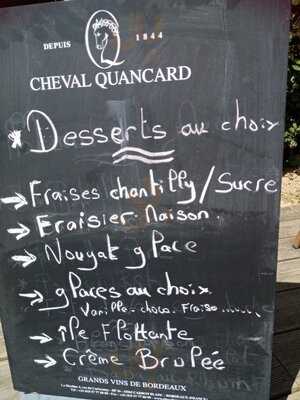 DEPUIS 1844
CHEVAL QUANCARD
* Desserts au choix
→ Fraises chantilly/Sucre
→ Fraisier Maison.
→ Nougat glace
→ glaces au choix
Vanille - choco. Fraise........
→ île Flottante
→ Crème Brulée
GRANDS VINS DE BORDEAUX